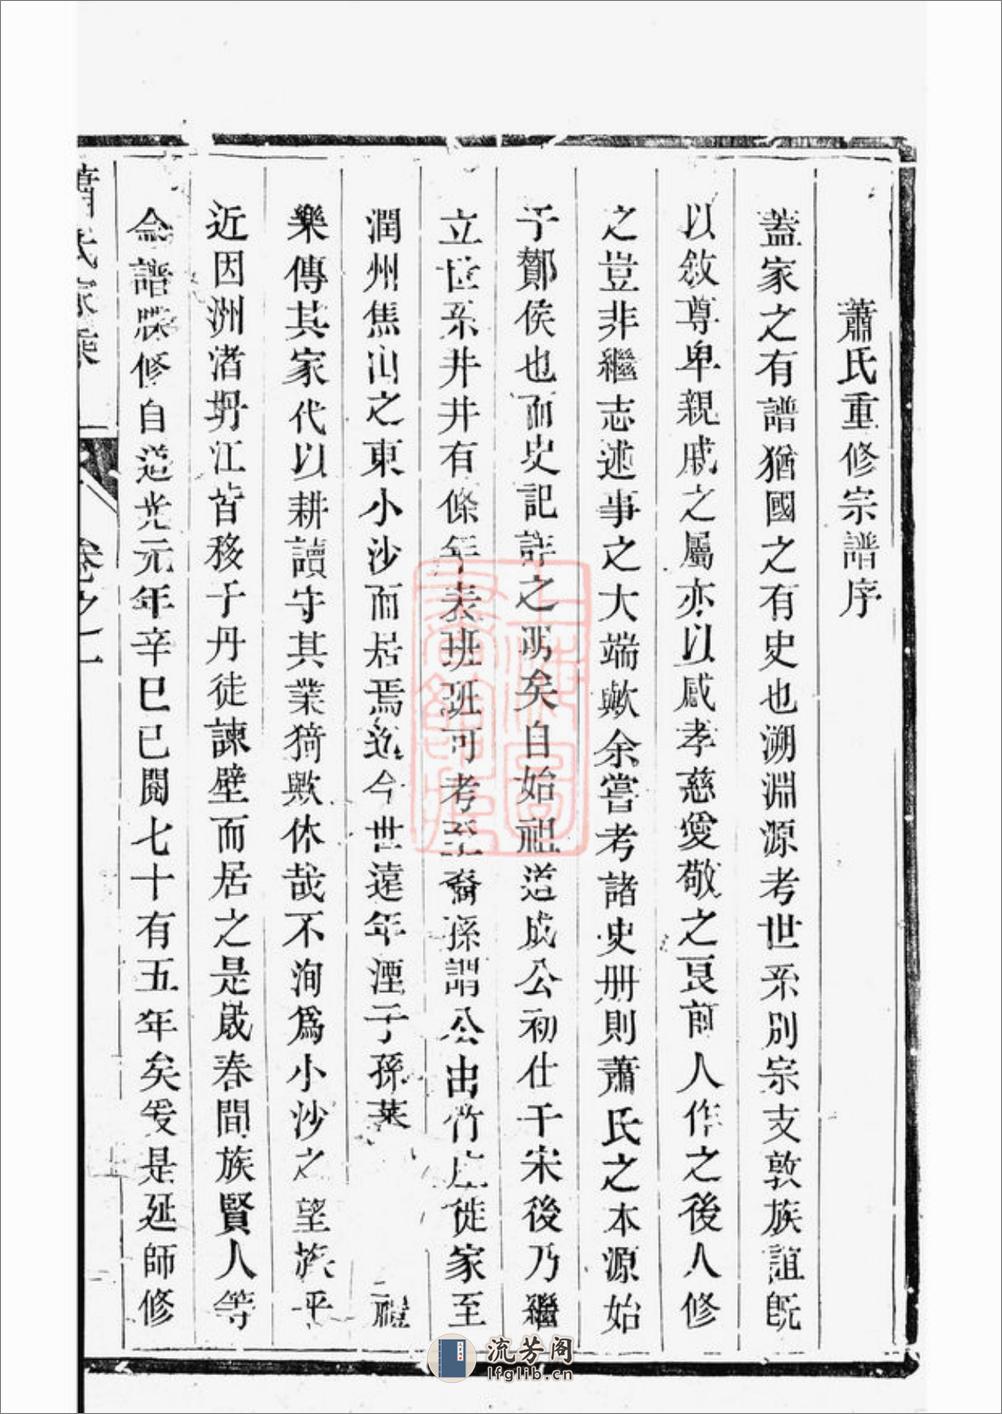 蕭氏重修宗譜序
蓋家之有譜猶國之有史也溯淵源考世系別宗支敦族誼旣
以敘尊卑親戚之屬亦以感孝慈愛敬之良前人作之後人修
之豈非繼志述事之大端歟余嘗考諸史册則蕭氏之本源始
于酇侯也而史記詳之矣自始祖道成公初仕于宋後乃繼
立世系井井有條年表班班可考至裔孫謂公出竹徙家至
潤州焦山之東小沙而居焉迄今世遠年湮子孫
樂傳其家代以耕讀守其業猗歟休哉不洵爲小沙之望族乎
近因洲渚坍江皆移于丹徒諫壁而居之是歲春間族賢人等
念譜牒修自道光元年辛巳已閱七十有五年矣爰是延師修
蕭氏家乘
卷之一
流芳阁
lfglib.cn